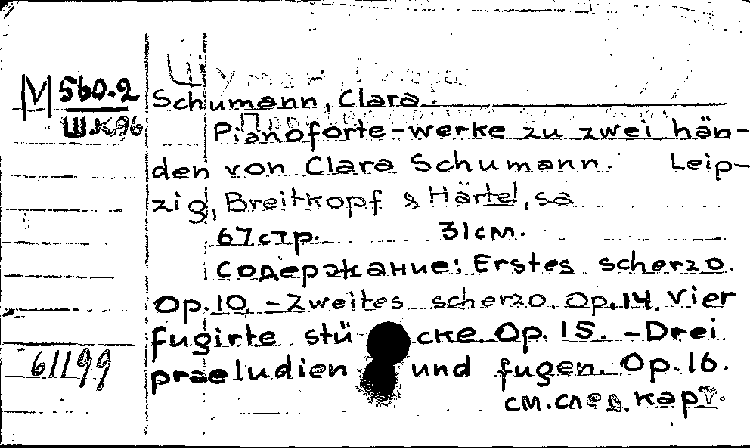 Шуман, Клара
М 560.2
Schumann, Clara.
Ш.К96
Pianoforte-werke zu zwei hän-
den von Clara Schumann. Leip-
zig, Breitkopf & Härtel, sa
67стр. 31см.
Содержание: Erstes scherzo.
Op.10. -Zweites scherzo. Op.14. Vier
fugirte stücke Op. 15. -Drei
61199
praeludien und fugen. Op.16.
см.след.карт.